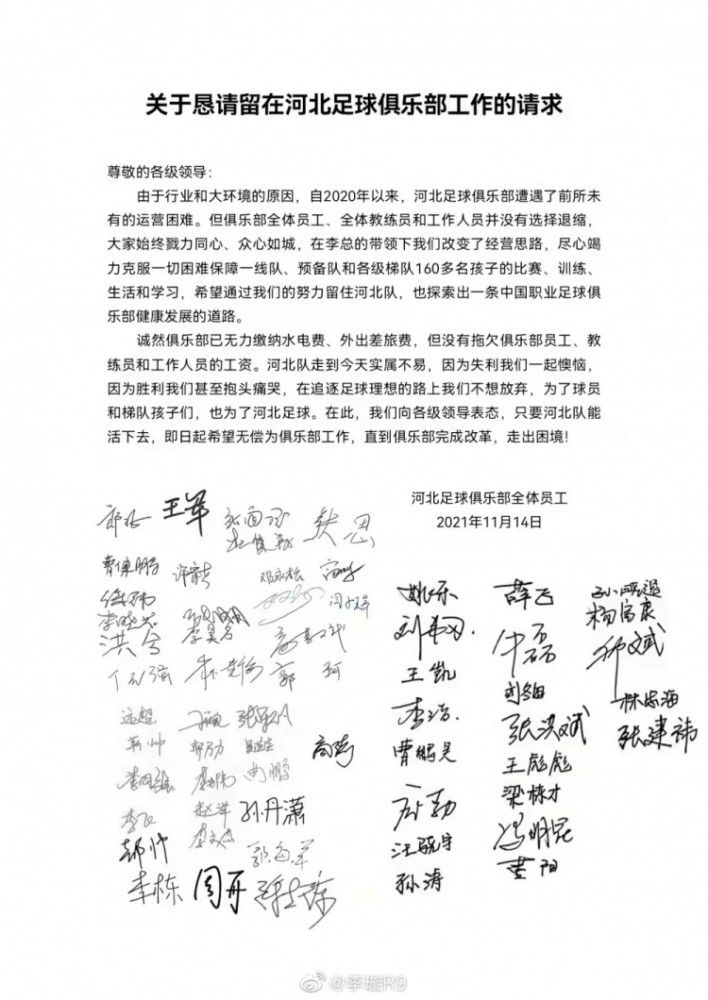 关于恳请留在河北足球俱乐部工作的请求
尊敬的各级领导：
由于行业和大环境的原因，自2020年以来，河北足球俱乐部遭遇了前所未
有的运营困难。但俱乐部全体员工、全体教练员和工作人员并没有选择退缩，
大家始终戮力同心、众心如城，在李总的带领下我们改变了经营思路，尽心竭
力克服一切困难保障一线队、预备队和各级梯队160多名孩子的比赛、训练、
生活和学习，希望通过我们的努力留住河北队，也探索出一条中国职业足球俱
乐部健康发展的道路。
诚然俱乐部已无力缴纳水电费、外出差旅费，但没有拖欠俱乐部员工、教
练员和工作人员的工资。河北队走到今天实属不易，因为失利我们一起懊恼，
因为胜利我们甚至抱头痛哭，在追逐足球理想的路上我们不想放弃，为了球员
和梯队孩子们，也为了河北足球。在此，我们向各级领导表态，只要河北队能
活下去，即日起希望无偿为俱乐部工作，直到俱乐部完成改革，走出困境！
河北足球俱乐部全体员工
2021年11月14日
王军
洪兮
郭 珂
孙丹潇
李栋 周开
姚乐
王凯
李浩
曹鹏昊
汪晓宇
孙涛
薛飞
牛磊
张洪斌
王彪彪
梁栋才
冯明昆
董阳
杨富康
林宏海
张建祎
@李璇R9